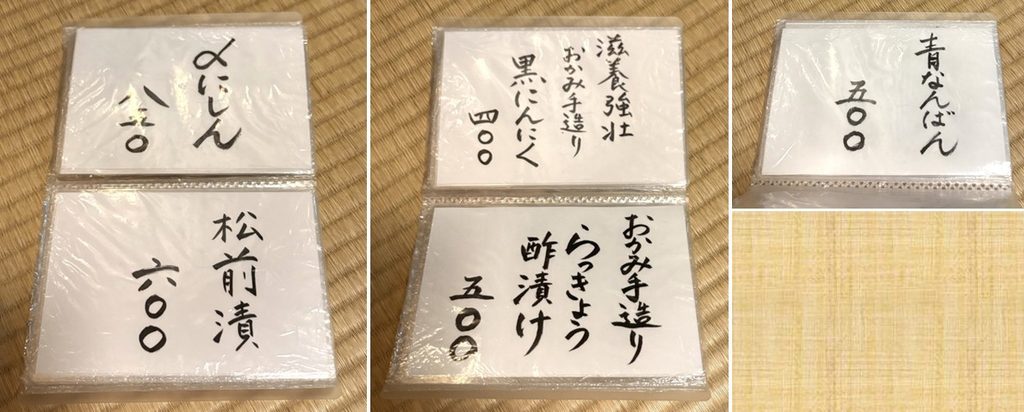 〆にしん
八五〇
松前漬
六〇〇
滋養強壮
おかみ手造り
黒にんにく
四〇〇
おかみ手造り
らっきょう
酢漬け
五〇〇
青なんばん
五〇〇